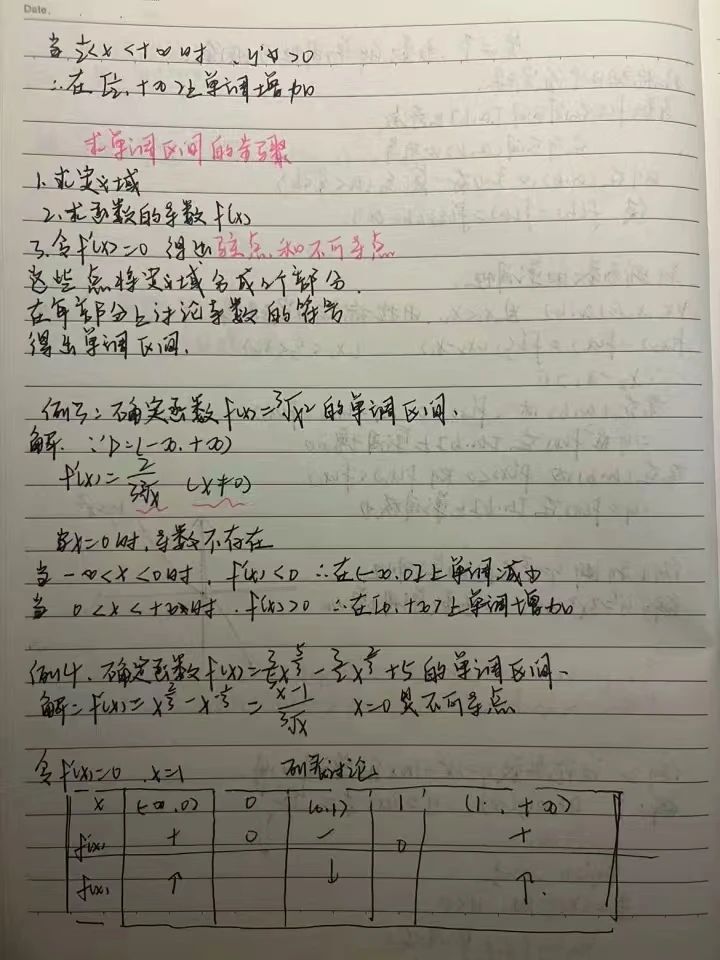 Date.
当 ½<x<+∞时, y'>0
∴在[½,+∞)上单调增加
求单调区间的步骤
1.求定义域
2.求函数的导数f'(x)
3.令f'(x)=0 得出驻点和不可导点
这些点将定义域分成几个部分.
在每部分上讨论导数的符号
得出单调区间.
例3:确定函数f(x)=³√x²的单调区间.
解. ∵D=(-∞,+∞)
f'(x)=2/(3³√x) (x≠0)
当x=0时,导数不存在
当 -∞<x<0时, f'(x)<0 ∴在(-∞,0]上单调减少
当 0<x<+∞时, f'(x)>0 ∴在[0,+∞)上单调增加
例4. 确定函数f(x)=x^(5/3) - x^(2/3)+5的单调区间.
解: f'(x)=x^(2/3)-x^(-1/3)=(x-1)/³√x x=0是不可导点
令f'(x)=0 x=1 列表讨论
x (-∞,0) 0 (0,1) 1 (1,+∞)
f'(x) + 0 - 0 +
f(x) ↑ ↓ ↑